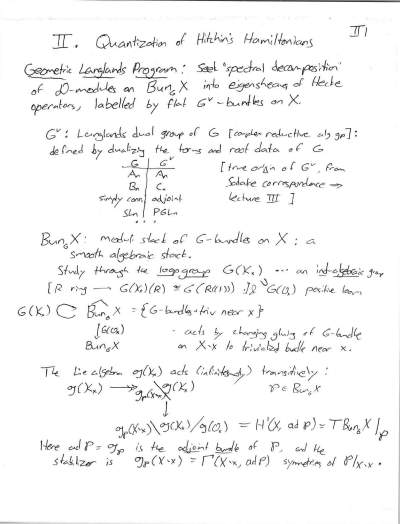 II 1
II. Quantization of Hitchin's Hamiltonians
Geometric Langlands Program: Seek "spectral decomposition"
of D-modules on Bun_G X into eigensheaves of Hecke
operators, labelled by flat G^v-bundles on X.
G^v: Langlands dual group of G [complex reductive alg gp]:
defined by dualizing the torus and root data of G
G | G^v [true origin of G^v, from
An | An Satake correspondence →
Bn | Cn lecture III ]
simply conn. | adjoint
SLn | PGLn
...
Bun_G X: moduli stack of G-bundles on X; a
smooth algebraic stack.
Study through the loop group G(K_x) ... an ind-algebraic group
[R ring → G(K_x)(R) ≅ G(R((t))) ] ⊇ G(O_x) positive loops
G(K_x) ⊂ Bun_G X = {G-bundles + triv near x}
↓ G(O_x) - acts by changing gluing of G-bundle
Bun_G X on X\x to trivialized bundle near x.
The Lie algebra g(K_x) acts (infinitesimally) transitively:
g(K_x) → g_P(X\x)\g(K_x) P∈Bun_G X
↓
g_P(X\x)\g(K_x)/g(O_x) = H¹(X, ad P) = T Bun_G X|_P
Here ad P = g_P is the adjoint bundle of P, and the
stabilizer is g_P(X\x) = Γ(X\x, ad P) symmetries of P|X\x.